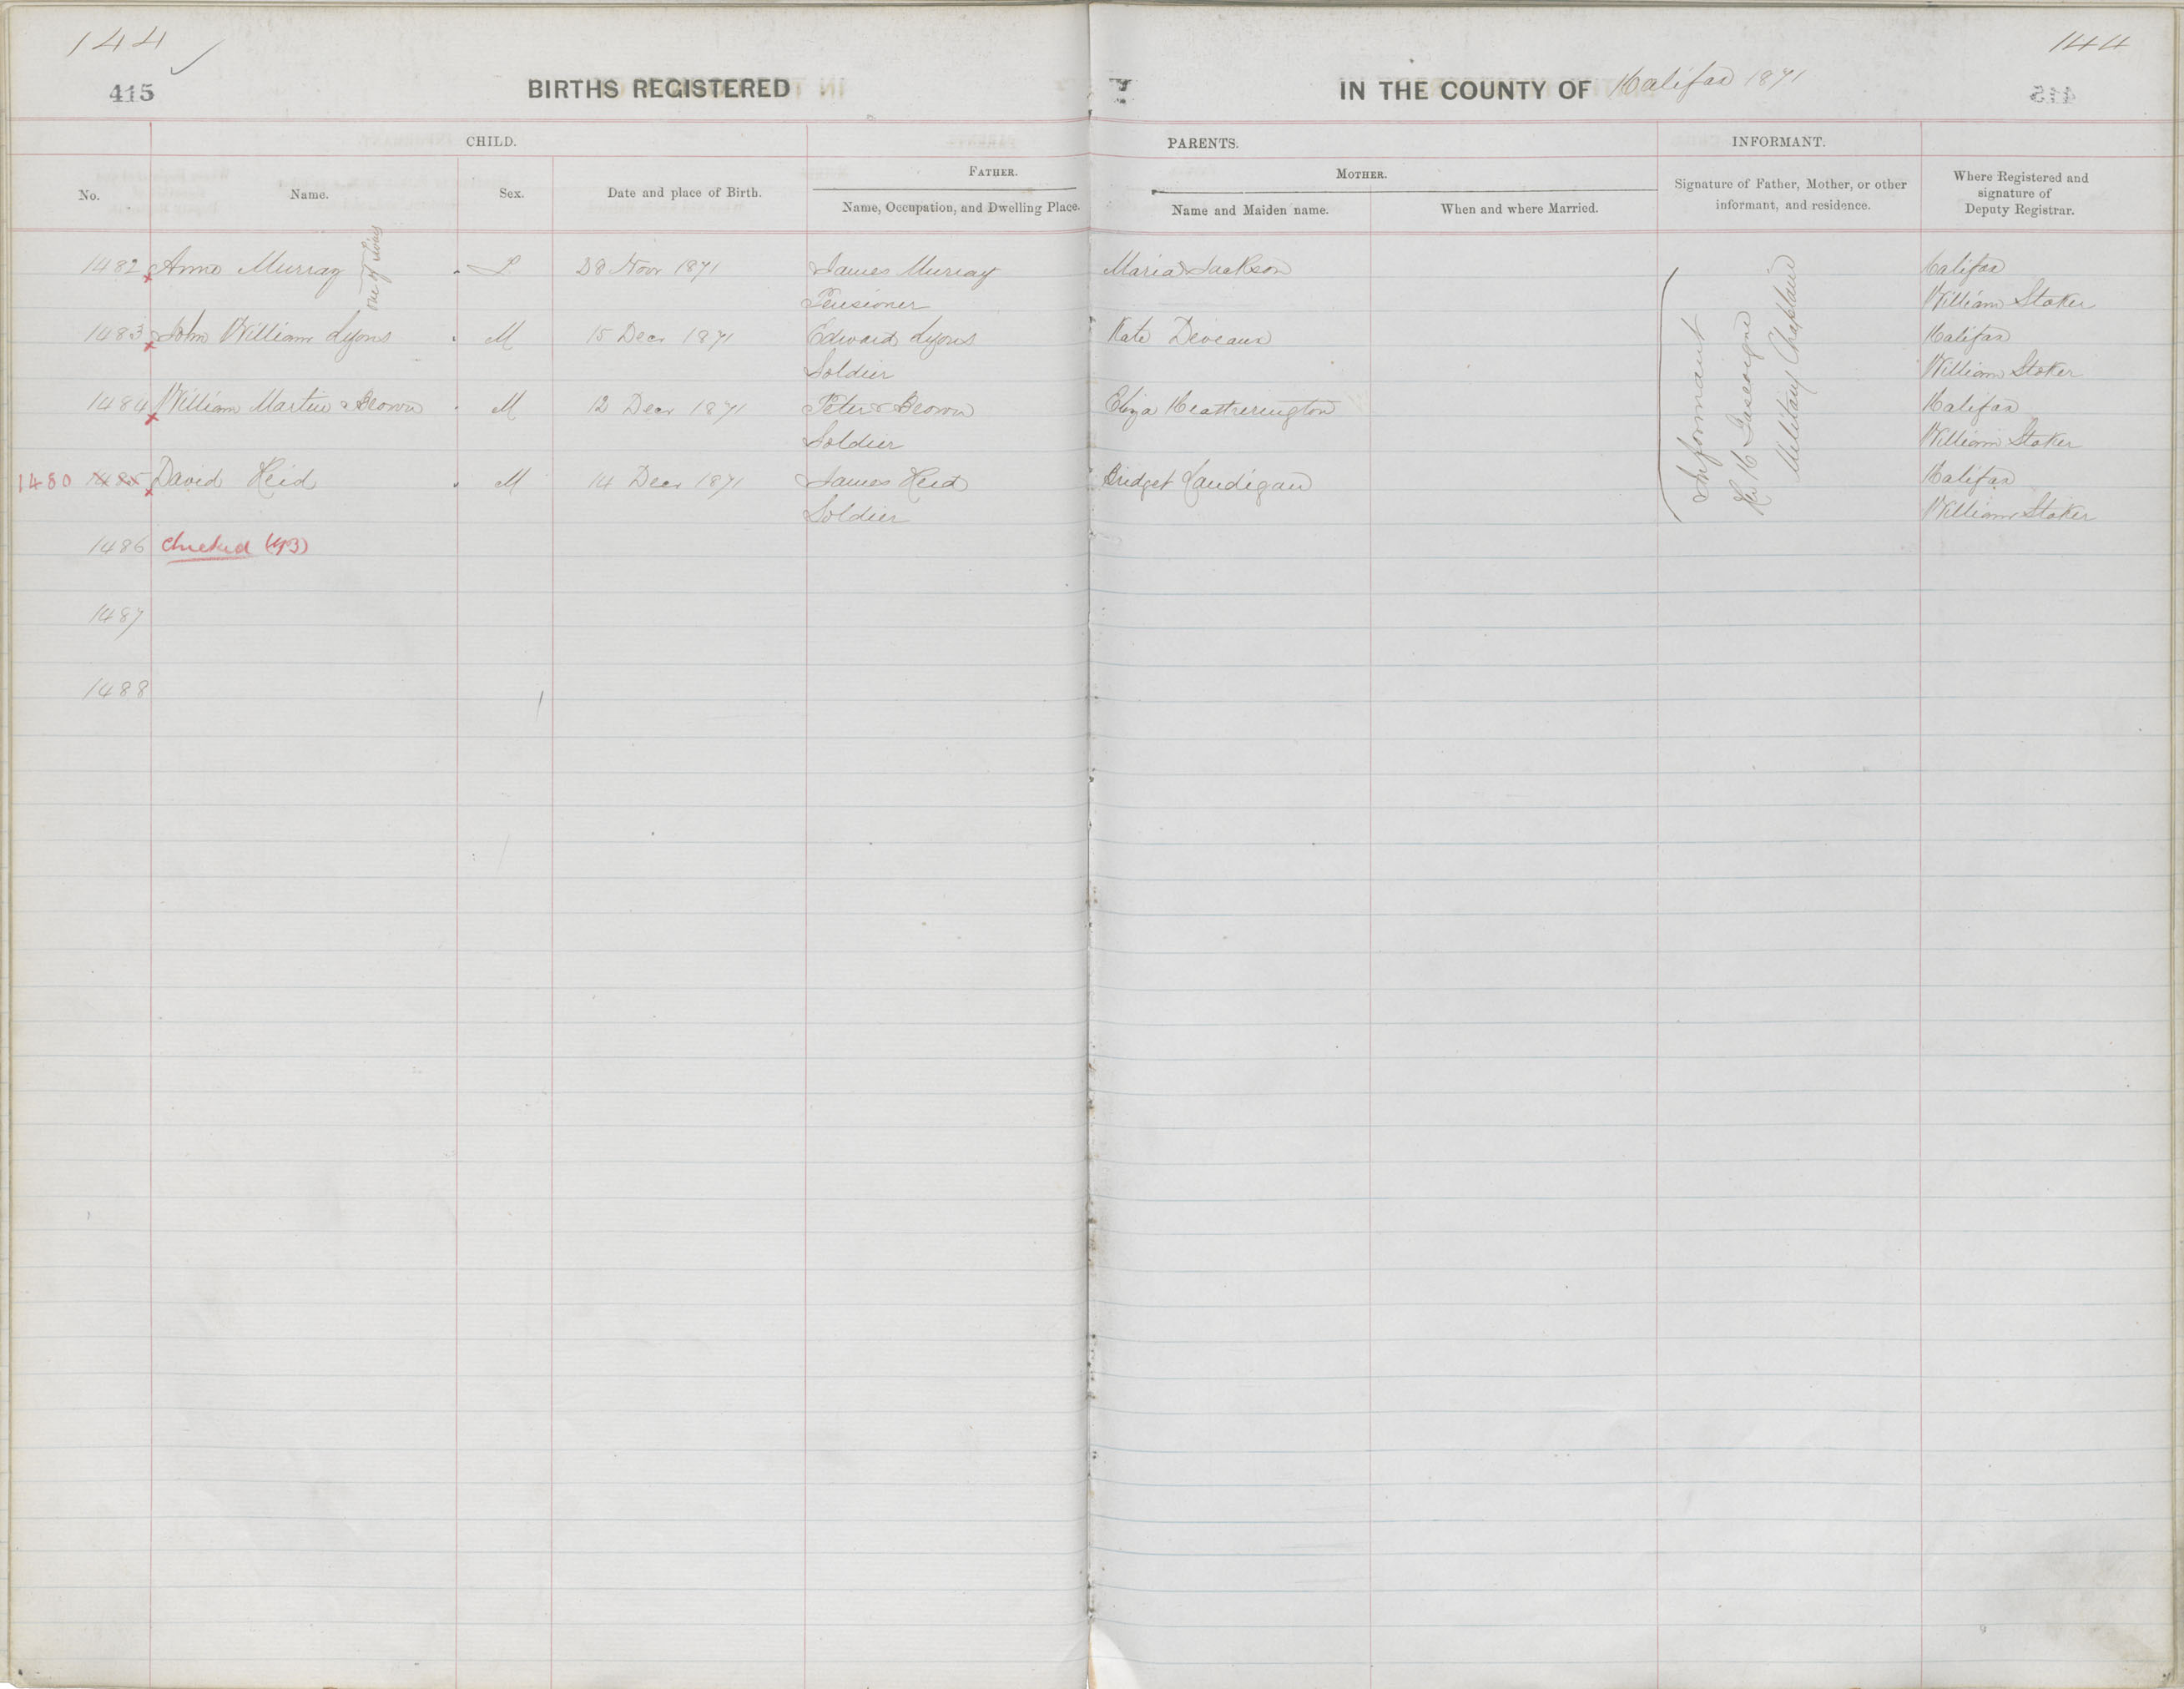 144 144
415
BIRTHS REGISTERED IN THE COUNTY OF Halifax 1871
CHILD. PARENTS. INFORMANT.
FATHER. MOTHER.
No. Name. Sex. Date and place of Birth. Name, Occupation, and Dwelling Place. Name and Maiden name. When and where Married. Signature of Father, Mother, or other informant, and residence. Where Registered and signature of Deputy Registrar.
1482 Anne Murray one of twins F 28 Novr 1871 James Murray Maria Jackson Halifax
Pensioner William Stoker
1483 John William Lyons M 15 Decr 1871 Edward Lyons Kate Deveaux Halifax
Soldier William Stoker
1484 William Martin Brown M 12 Decr 1871 Peter Brown Eliza Heatherington Halifax
Soldier William Stoker
1480 1485 David Reid M 14 Decr 1871 James Reid Bridget Halifax
Soldier William Stoker
Informant
Gascoigne
Military Chaplain
1486 checked (43)
1487
1488